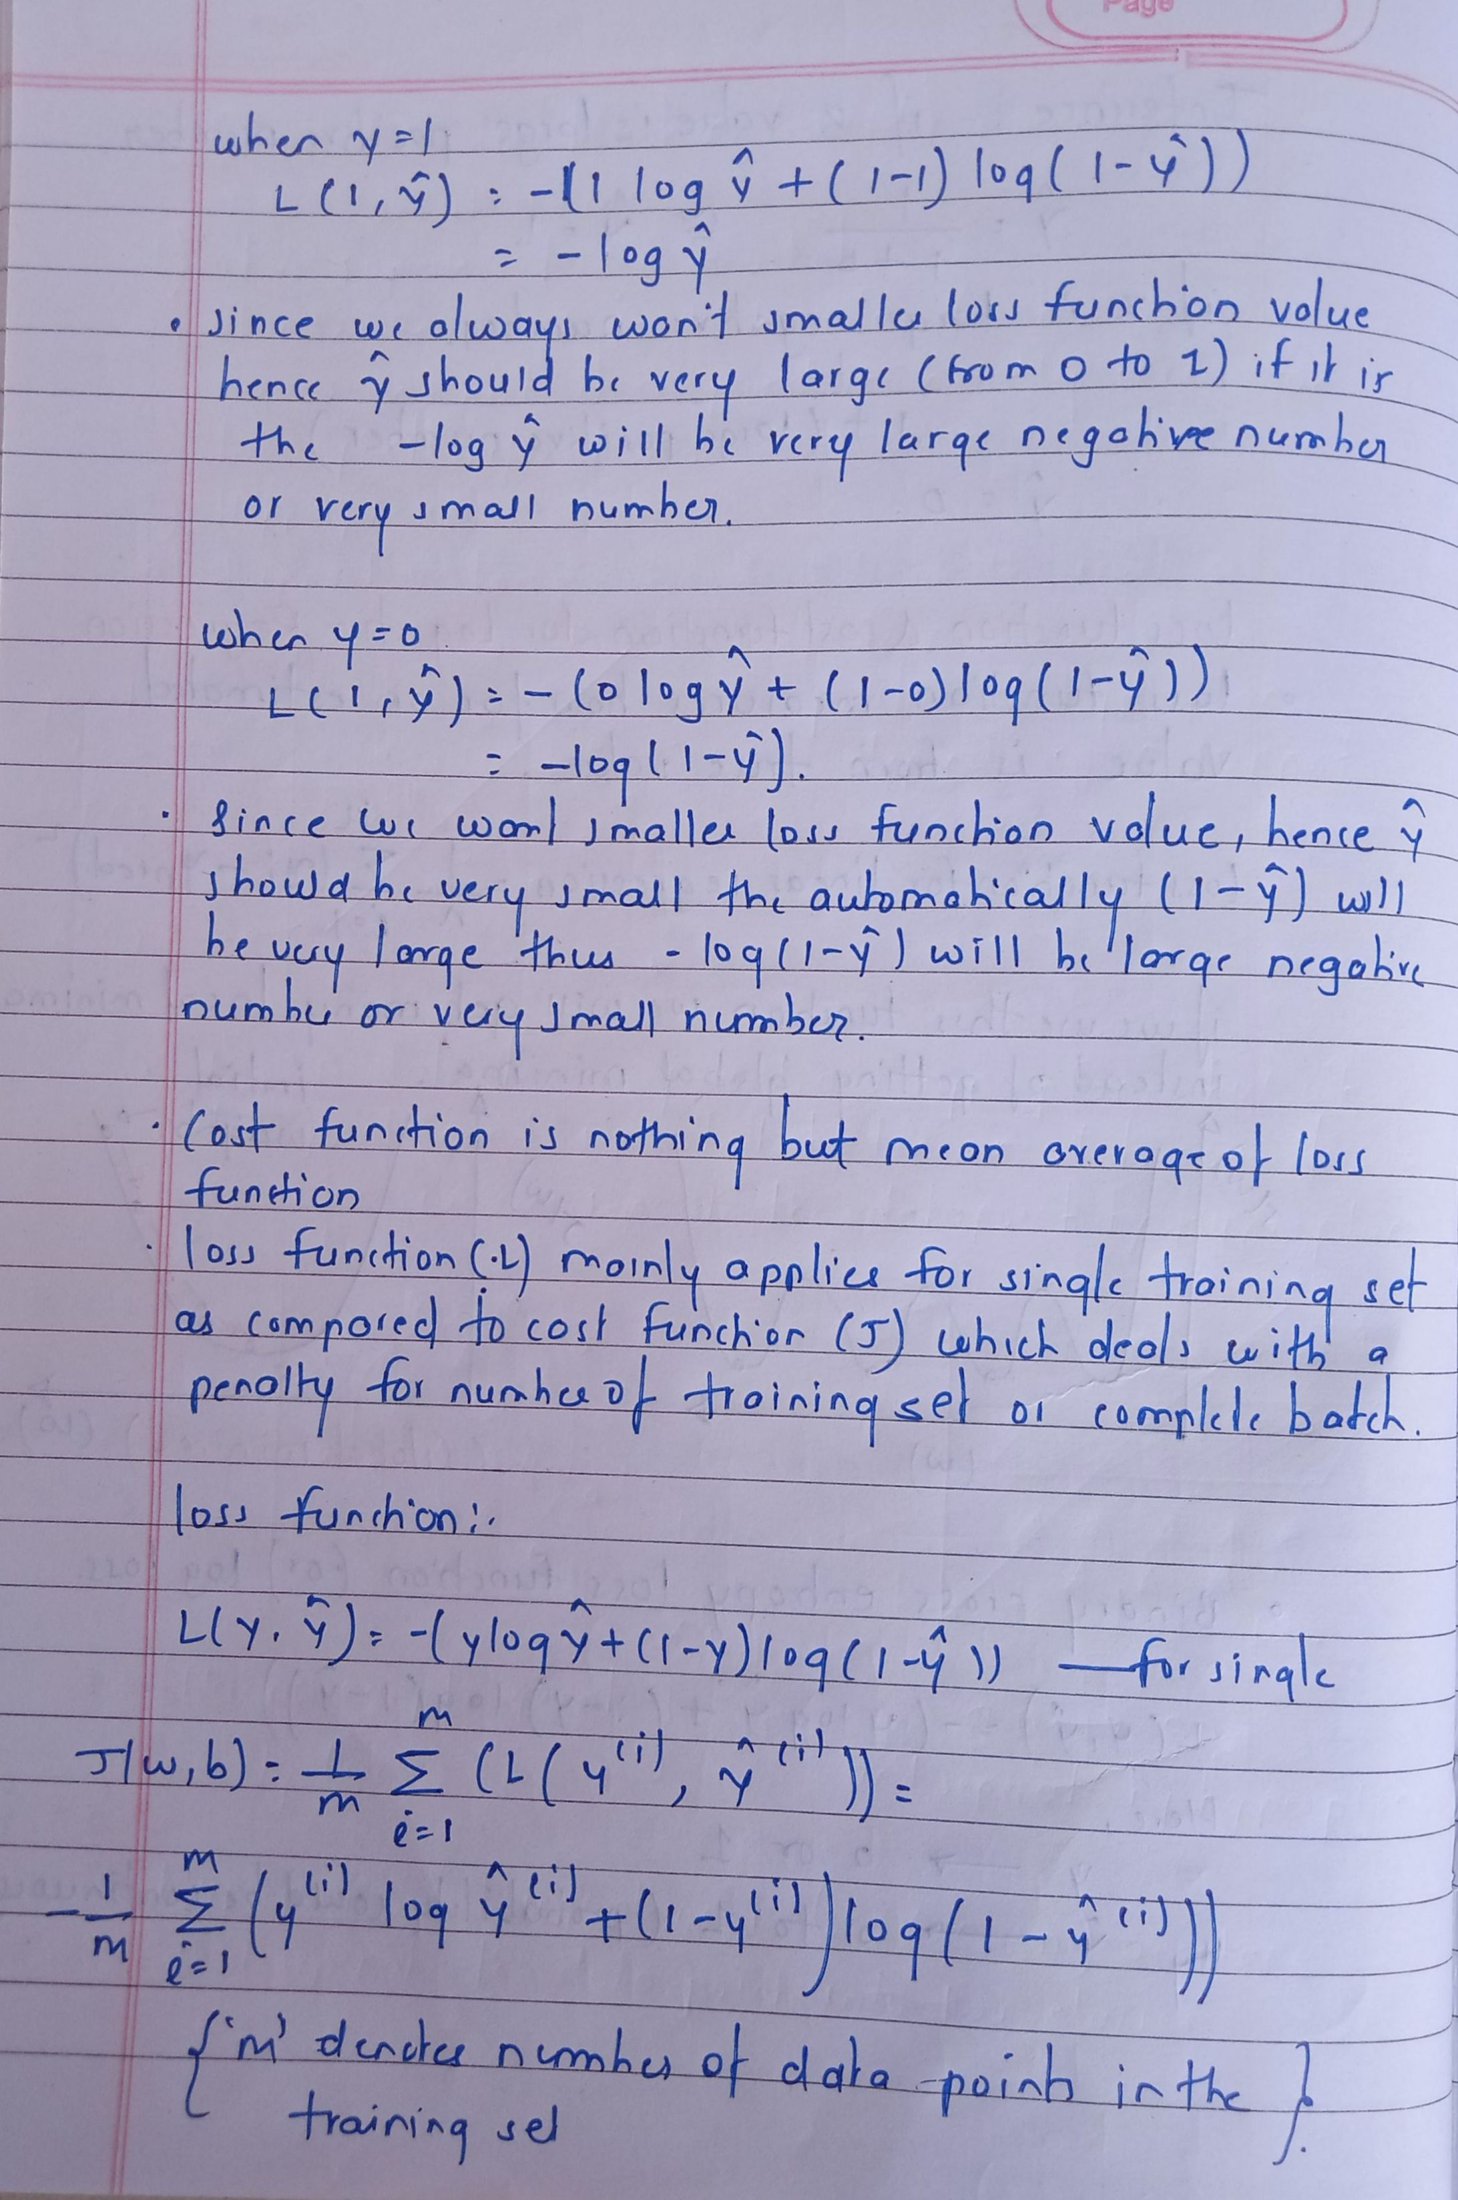 Page
when y=1
L(1,ŷ) : -(1 log ŷ + (1-1) log(1-ŷ))
= -log ŷ
• since we always won't smaller loss function value
hence ŷ should be very large (from 0 to 1) if it is
the -log ŷ will be very large negative number
or very small number.
when y=0
L(1,ŷ) = -(0 log ŷ + (1-0) log(1-ŷ))
= -log(1-ŷ).
• since we want smaller loss function value, hence ŷ
should be very small the automatically (1-ŷ) will
be very large thus -log(1-ŷ) will be large negative
number or very small number.
• Cost function is nothing but mean average of loss
function
• loss function (L) mainly applies for single training set
as compared to cost function (J) which deals with a
penalty for number of training set or complete batch.
loss function:.
L(y, ŷ) = -(y log ŷ + (1-y) log(1-ŷ)) — for single
J(w,b) = 1/m m∑i=1 (L(y(i), ŷ(i))) =
-1/m m∑i=1 (y(i) log ŷ(i) + (1-y(i)) log(1-ŷ(i)))
{'m' denotes number of data points in the }.
training set